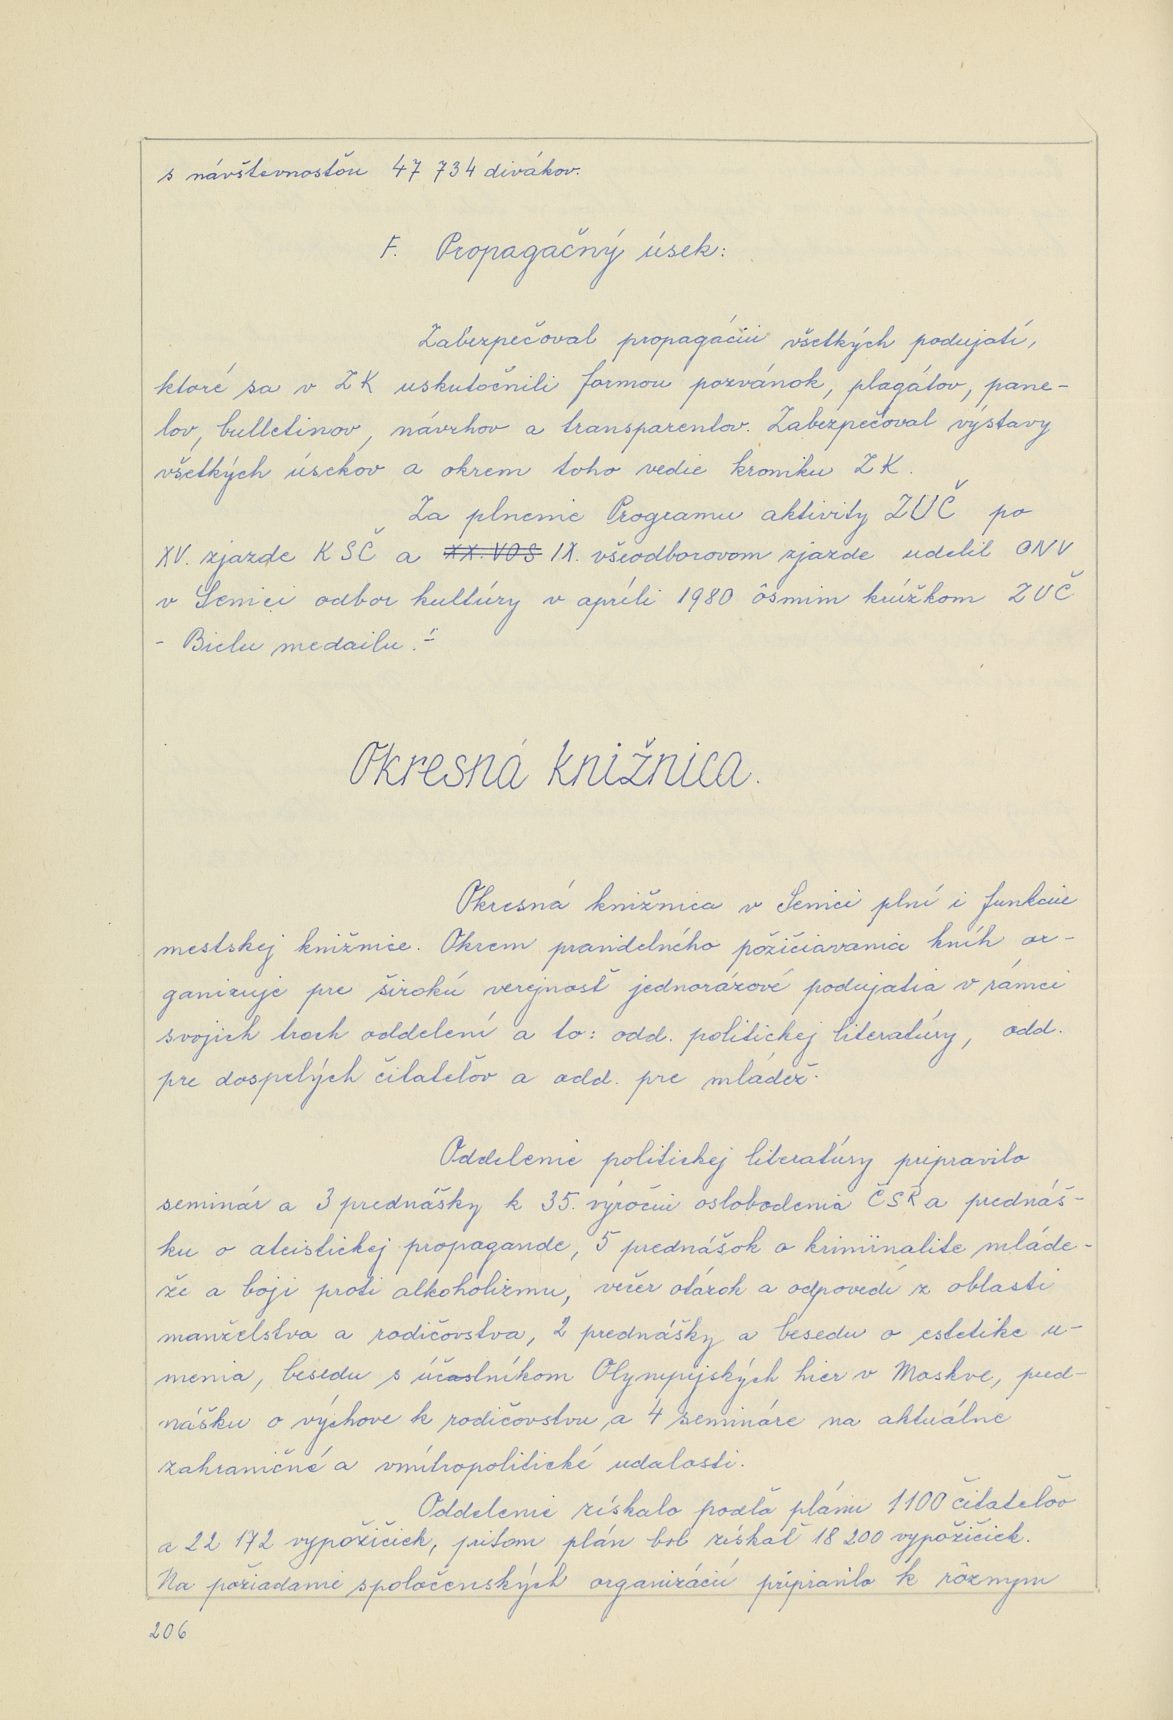 s návštevnosťou 47 734 divákov.
F. Propagačný úsek:
Zabezpečoval propagáciu všetkých podujatí,
ktoré sa v ZK uskutočnili formou pozvánok, plagátov, pane-
lov, bulletinov, návrhov a transparentov. Zabezpečoval výstavy
všetkých úsekov a okrem toho vedie kroniku ZK.
Za plnenie Programu aktivity ZUČ po
XV. zjazde KSČ a XX. VOS IX. všeodborovom zjazde udelil ONV
v Senici odbor kultúry v apríli 1980 ôsmim krúžkom ZUČ
- Bielu medailu.-"
Okresná knižnica.
Okresná knižnica v Senici plní i funkcie
mestskej knižnice. Okrem pravidelného požičiavania kníh or-
ganizuje pre širokú verejnosť jednorázové podujatia v rámci
svojich troch oddelení a to: odd. politickej literatúry, odd.
pre dospelých čitateľov a odd. pre mládež.
Oddelenie politickej literatúry pripravilo
seminár a 3 prednášky k 35. výročiu oslobodenia ČSR a prednáš-
ku o ateistickej propagande, 5 prednášok o kriminalite mláde-
že a boji proti alkoholizmu, večer otázok a odpovedí z oblasti
manželstva a rodičovstva, 2 prednášky a besedu o estetike u-
menia, besedu s účastníkom Olympijských hier v Moskve, pred-
nášku o výchove k rodičovstvu a 4 semináre na aktuálne
zahraničné a vnútropolitické udalosti.
Oddelenie získalo podľa plánu 1100 čitateľov
a 22 172 vypožičiek, pritom plán bol získať 18 200 vypožičiek.
Na požiadanie spoločenských organizácií pripravilo k rôznym
206